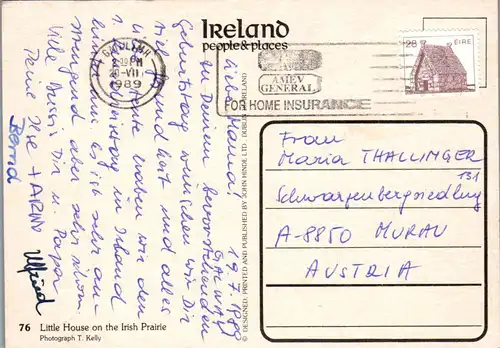 IRELAND
people & places
GAILLIMH
20-VII
1989
AMEV
GENERAL
FOR HOME INSURANCE
28
ÉIRE
19.7.1989
Liebe Mama!
Zu Deinem bevorstehenden
Geburtstag wünschen wir Dir
viel Gesundheit und alles
Heute haben wir den
in Irland
Es ist sehr an-
strengend aber sehr schön.
Viele Bussis Dir u. Papa
Deine Ilse +
Bernd
© DESIGNED, PRINTED AND PUBLISHED BY JOHN HINDE LTD. DUBLIN IRELAND
Frau
Maria THALLINGER
131
Schwarzenbergsiedlung
A-8850 MURAU
AUSTRIA
76 Little House on the Irish Prairie
Photograph T. Kelly